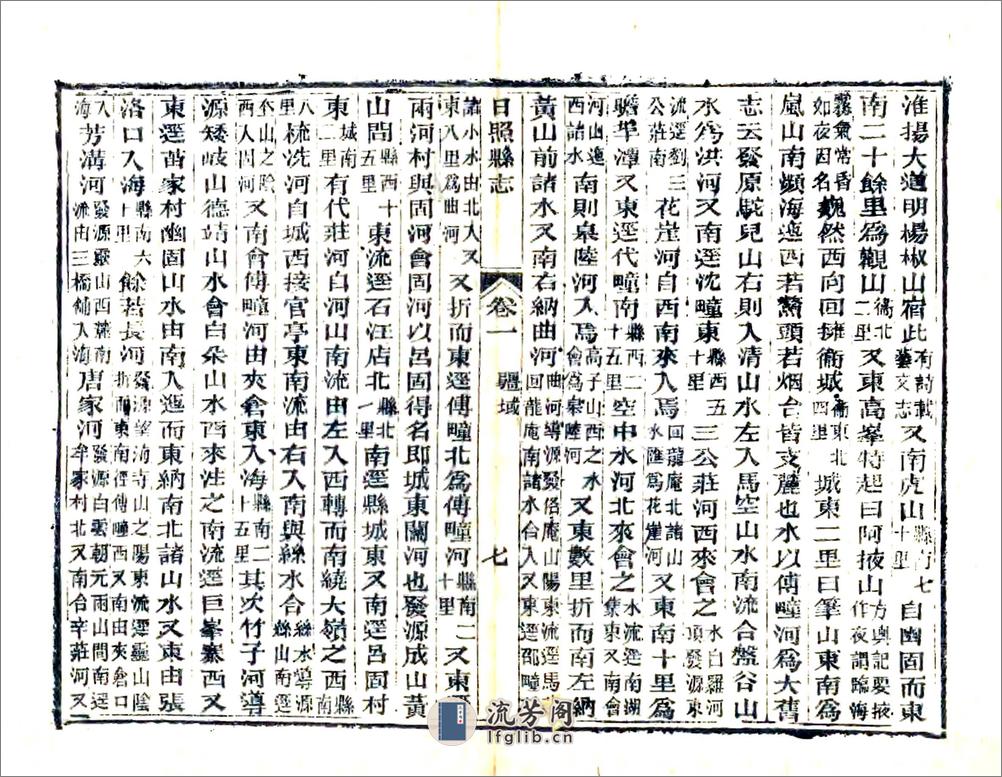 淮揚大道明楊椒山宿此有詩載藝文志又南虎山縣南七十里自幽固而東
南二十餘里爲觀山衞北二里又東高峯特起曰阿掖山方輿記要掖作夜謂臨海
霧氣常昏如夜因名巍然西向回擁衞城衞東北四里城東二里曰筆山東南爲
嵐山南瀕海迤西若鷲頭若烟台皆支麓也水以傅疃河爲大舊
志云發原駝兒山右則入清山水左入馬空山水南流合盤谷山
水爲洪河又南逕沈疃東縣西五十里三公莊河西來會之水白羅河頂發源東
流逕劉三公莊南花崖河自西南來入焉回龍庵北諸山水匯爲花崖河又東南十里爲
瞻埠潭又東逕代疃南縣西二十五里空中水河北來會之水流逕南湖集東又南會
河山迤西諸水南則臯陸河入焉高子山西之水會爲臯陸河又東數里折而南左納
黃山前諸水又南右納曲河曲河導源發俗庵山陽東流逕馬回龍庵南諸水合入又東逕邵疃
日照縣志
卷一
疆域
七
諸小水由北入又東八里爲曲河又折而東逕傅疃北爲傅疃河縣南二十里又東
兩河村與固河會固河以呂固得名即城東關河也發源成山黃
山間縣西十五里東流逕石汪店北縣北一里南逕縣城東又南逕呂固村
東城南二里有代莊河自河山南流由左入西轉而南繞大嶺之西縣南
八里梳洗河自城西接官亭東南流由右入南與絲水合絲水導源絲山南逕
至山之陰西入固河又南會傅疃河由夾倉東入海縣南二十五里其次竹子河導
源矮岐山德站山水會白朵山水西來注之南流逕巨峯寨西又
東逕黃家村幽固山水由南入迤而東納南北諸山水又東由張
洛口入海縣南六十里餘若長河發源望海寺山之陽東流逕龜山陰入海
芳溝河發源靈山西麓南折而東南徑傅疃西又南由夾倉口流由三橋舖入海唐家河發源白雲朝元兩山間南逕牟家村北又南合辛莊河又